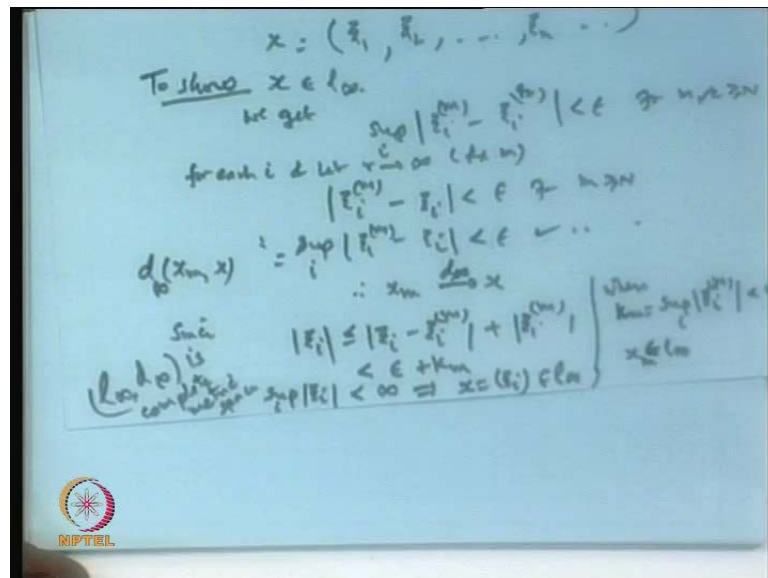 x = (ξ₁, ξ₂, ...., ξₙ ...)
To show x ∈ l∞.
We get
sup_i |ξ_i^(m) - ξ_i^(r)| < ε for m, r ≥ N
for each i & let r → ∞ (fix m)
|ξ_i^(m) - ξ_i| < ε for m ≥ N
d_∞(x_m, x) = sup_i |ξ_i^(m) - ξ_i| < ε
∴ x_m →^{d∞} x
Since |ξ_i| ≤ |ξ_i - ξ_i^(m)| + |ξ_i^(m)|
< ε + K_m
where
K_m = sup_i |ξ_i^(m)| <
x_m ∈ l∞
sup_i |ξ_i| < ∞ ⇒ x = (ξ_i) ∈ l∞
(l∞, d∞) is
complete
metric space
NPTEL